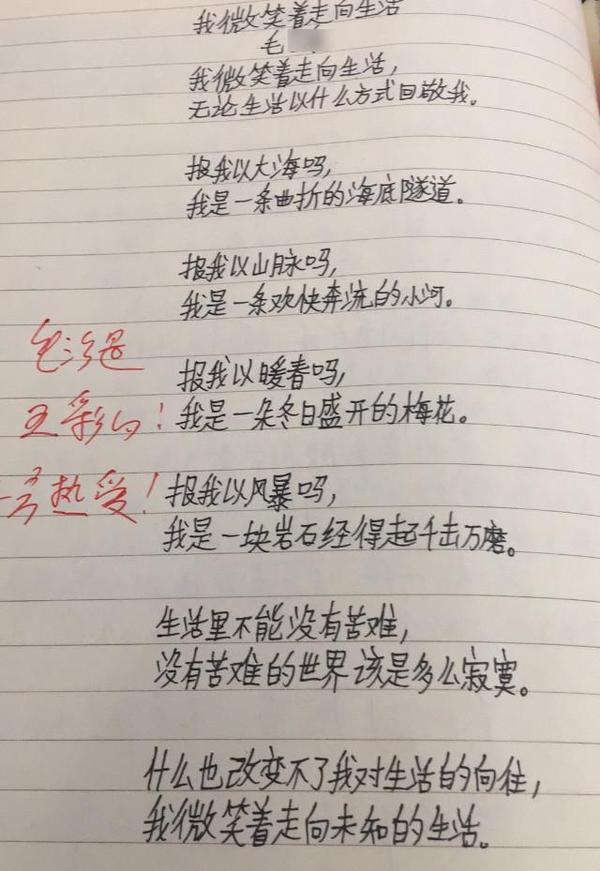 我微笑着走向生活
毛
我微笑着走向生活，
无论生活以什么方式回敬我。
报我以大海吗，
我是一条曲折的海底隧道。
报我以山脉吗，
我是一条欢快奔流的小河。
报我以暖春吗，
我是一朵冬日盛开的梅花。
报我以风暴吗，
我是一块岩石经得起千击万磨。
生活里不能没有苦难，
没有苦难的世界该是多么寂寞。
什么也改变不了我对生活的向往，
我微笑着走向未知的生活。
五彩的！
热爱！